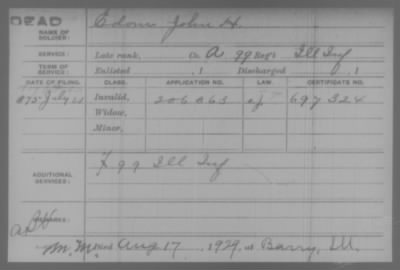 DEAD
NAME OF SOLDIER: Edom John H.
SERVICE: Late rank, Co. A. 99 Reg't Ill Inf
TERM OF SERVICE: Enlisted , 1 Discharged , 1
DATE OF FILING. CLASS. APPLICATION NO. LAW. CERTIFICATE NO.
July Invalid, 206063 697324
Widow,
Minor,
ADDITIONAL SERVICES: K 99 Ill Inf
Died Aug 17, 1929, at Barry, Ill.